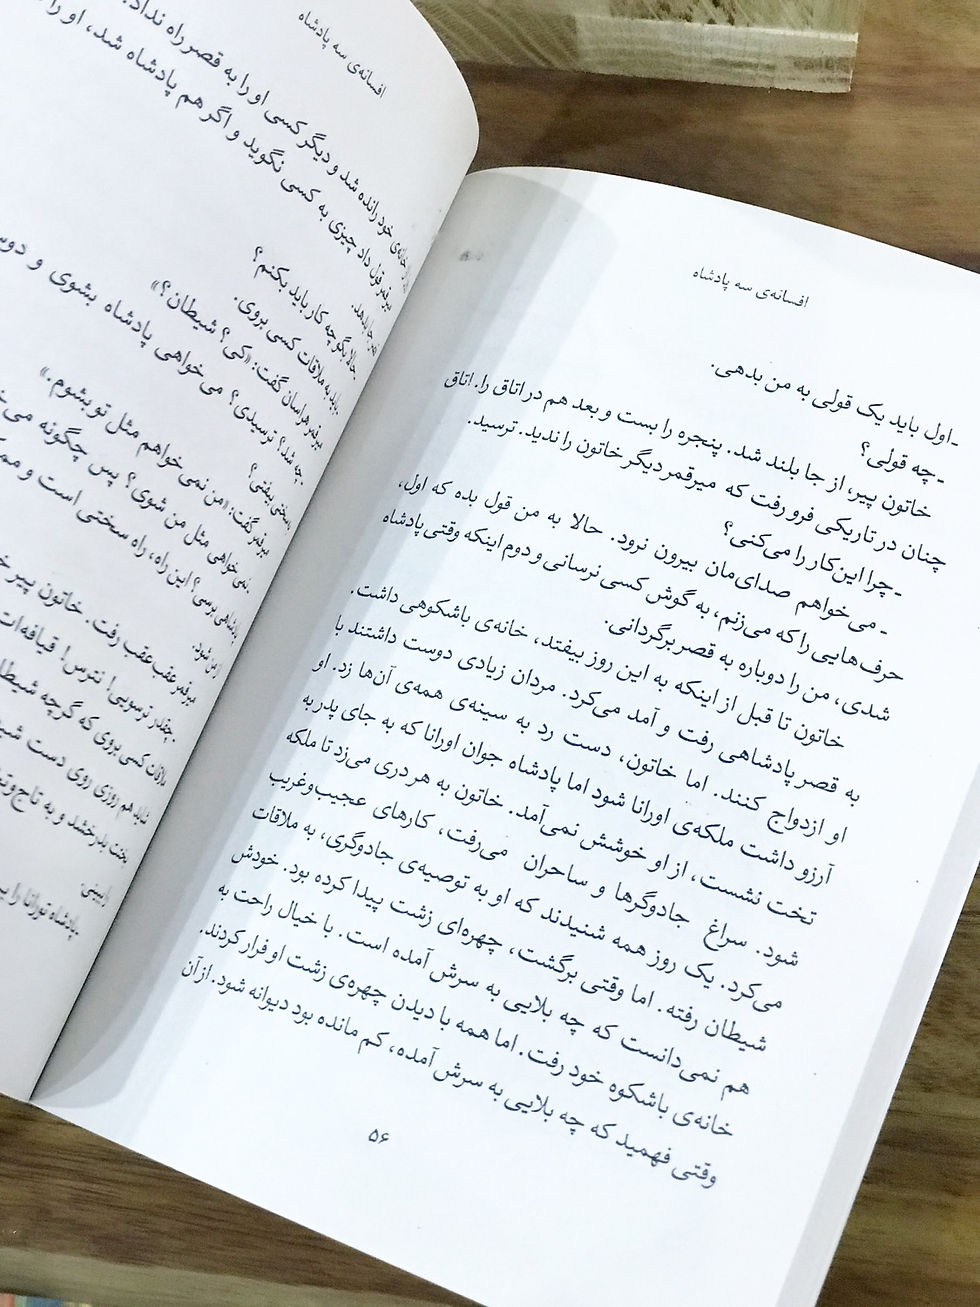 افسانه‌ی سه پادشاه
-اول باید یک قولی به من بدهی.
- چه قولی؟
خاتون پیر، از جا بلند شد. پنجره را بست و بعد هم در اتاق را. اتاق
چنان در تاریکی فرو رفت که میرقمر دیگر خاتون را ندید. ترسید.
- چرا این‌کار را می‌کنی؟
- می‌خواهم صدای‌مان بیرون نرود. حالا به من قول بده که اول،
حرف‌هایی را که می‌زنم، به گوش کسی نرسانی و دوم اینکه وقتی پادشاه
شدی، من را دوباره به قصر برگردانی.
خاتون تا قبل از اینکه به این روز بیفتند، خانه‌ی باشکوهی داشت.
به قصر پادشاهی رفت و آمد می‌کرد. مردان زیادی دوست داشتند با
او ازدواج کنند. اما خاتون، دست رد به سینه‌ی همه‌ی آن‌ها زد. او
آرزو داشت ملکه‌ی اورانا شود اما پادشاه جوان اورانا که به جای پدر به
تخت نشست، از او خوشش نمی‌آمد. خاتون به هر دری می‌زد تا ملکه
شود. سراغ جادوگرها و ساحران می‌رفت، کارهای عجیب‌وغریب
می‌کرد. یک روز همه شنیدند که او به توصیه‌ی جادوگری، به ملاقات
شیطان رفته. اما وقتی برگشت، چهره‌ای زشت پیدا کرده بود. خودش
هم نمی‌دانست که چه بلایی به سرش آمده است. با خیال راحت به
خانه‌ی باشکوه خود رفت. اما همه با دیدن چهره‌ی زشت او فرار کردند.
وقتی فهمید که چه بلایی به سرش آمده، کم مانده بود دیوانه شود. از آن
۵۶
افسانه‌ی سه پادشاه
خانه‌ی خود رانده شد و دیگر کسی او را به قصر راه نداد.
میرقمر قول داد چیزی به کسی نگوید و اگر هم پادشاه شد، او را
-حالا بگو چه کار باید بکنم؟
-باید به ملاقات کسی بروی.
میرقمر هراسان گفت: «کی؟ شیطان؟»
-چه شد؟ ترسیدی؟ می‌خواهی پادشاه بشوی و
بیفتی؟
میرقمر گفت: «من نمی‌خواهم مثل تو بشوم.»
-نمی‌خواهی مثل من شوی؟ پس چگونه
پادشاهی برسی؟ این راه، راه سختی است و
میرقمر عقب‌عقب رفت. خاتون پیر
-چقدر ترسویی! نترس! قیافه‌ات
ملاقات کسی بروی که گرچه
باید هم روزی روی دست
بخت بدرخشد و به
-پادشاه تورانا را